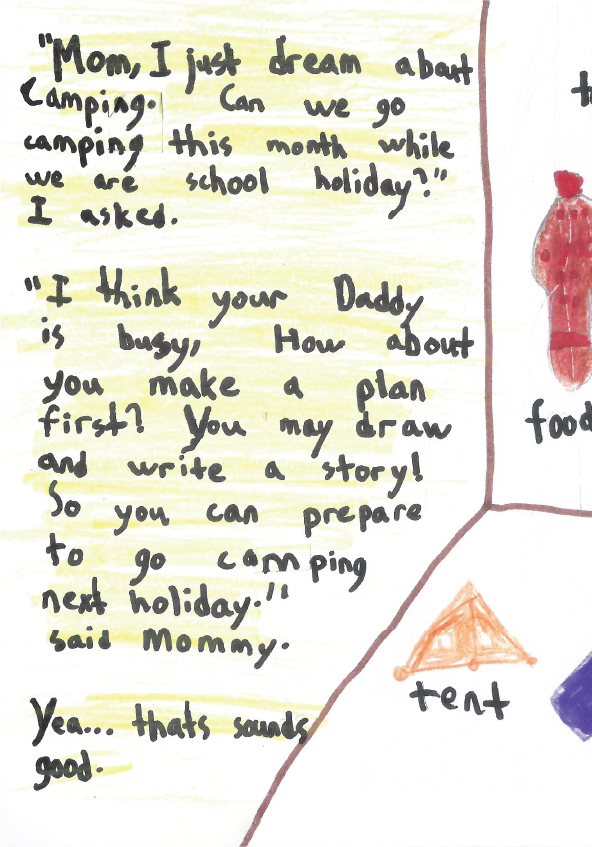 "Mom, I just dream about
Camping. Can we go
camping this month while
we are school holiday?"
I asked.
"I think your Daddy
is busy, How about
you make a plan
first? You may draw
and write a story!
So you can prepare
to go camping
next holiday."
said Mommy.
Yea... thats sounds
good.
food
tent